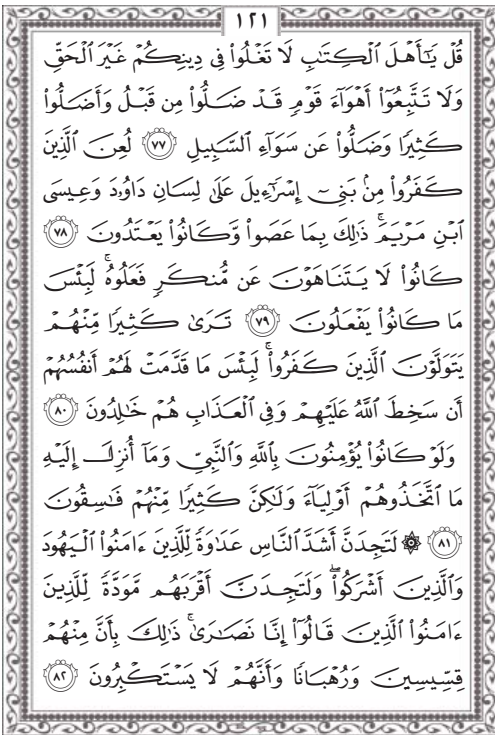 ١٢١
قُلْ يَٰٓأَهْلَ ٱلْكِتَٰبِ لَا تَغْلُوا۟ فِى دِينِكُمْ غَيْرَ ٱلْحَقِّ
وَلَا تَتَّبِعُوٓا۟ أَهْوَآءَ قَوْمٍ قَدْ ضَلُّوا۟ مِن قَبْلُ وَأَضَلُّوا۟
كَثِيرًا وَضَلُّوا۟ عَن سَوَآءِ ٱلسَّبِيلِ ٧٧ لُعِنَ ٱلَّذِينَ
كَفَرُوا۟ مِنۢ بَنِىٓ إِسْرَٰٓءِيلَ عَلَىٰ لِسَانِ دَاوُۥدَ وَعِيسَى
ٱبْنِ مَرْيَمَ ۚ ذَٰلِكَ بِمَا عَصَوا۟ وَّكَانُوا۟ يَعْتَدُونَ ٧٨
كَانُوا۟ لَا يَتَنَاهَوْنَ عَن مُّنكَرٍ فَعَلُوهُ ۚ لَبِئْسَ
مَا كَانُوا۟ يَفْعَلُونَ ٧٩ تَرَىٰ كَثِيرًا مِّنْهُمْ
يَتَوَلَّوْنَ ٱلَّذِينَ كَفَرُوا۟ ۚ لَبِئْسَ مَا قَدَّمَتْ لَهُمْ أَنفُسُهُمْ
أَن سَخِطَ ٱللَّهُ عَلَيْهِمْ وَفِى ٱلْعَذَابِ هُمْ خَٰلِدُونَ ٨٠
وَلَوْ كَانُوا۟ يُؤْمِنُونَ بِٱللَّهِ وَٱلنَّبِىِّ وَمَآ أُنزِلَ إِلَيْهِ
مَا ٱتَّخَذُوهُمْ أَوْلِيَآءَ وَلَٰكِنَّ كَثِيرًا مِّنْهُمْ فَٰسِقُونَ
٨١ ۞ لَتَجِدَنَّ أَشَدَّ ٱلنَّاسِ عَدَٰوَةً لِّلَّذِينَ ءَامَنُوا۟ ٱلْيَهُودَ
وَٱلَّذِينَ أَشْرَكُوا۟ ۖ وَلَتَجِدَنَّ أَقْرَبَهُم مَّوَدَّةً لِّلَّذِينَ
ءَامَنُوا۟ ٱلَّذِينَ قَالُوٓا۟ إِنَّا نَصَٰرَىٰ ۚ ذَٰلِكَ بِأَنَّ مِنْهُمْ
قِسِّيسِينَ وَرُهْبَانًا وَأَنَّهُمْ لَا يَسْتَكْبِرُونَ ٨٢